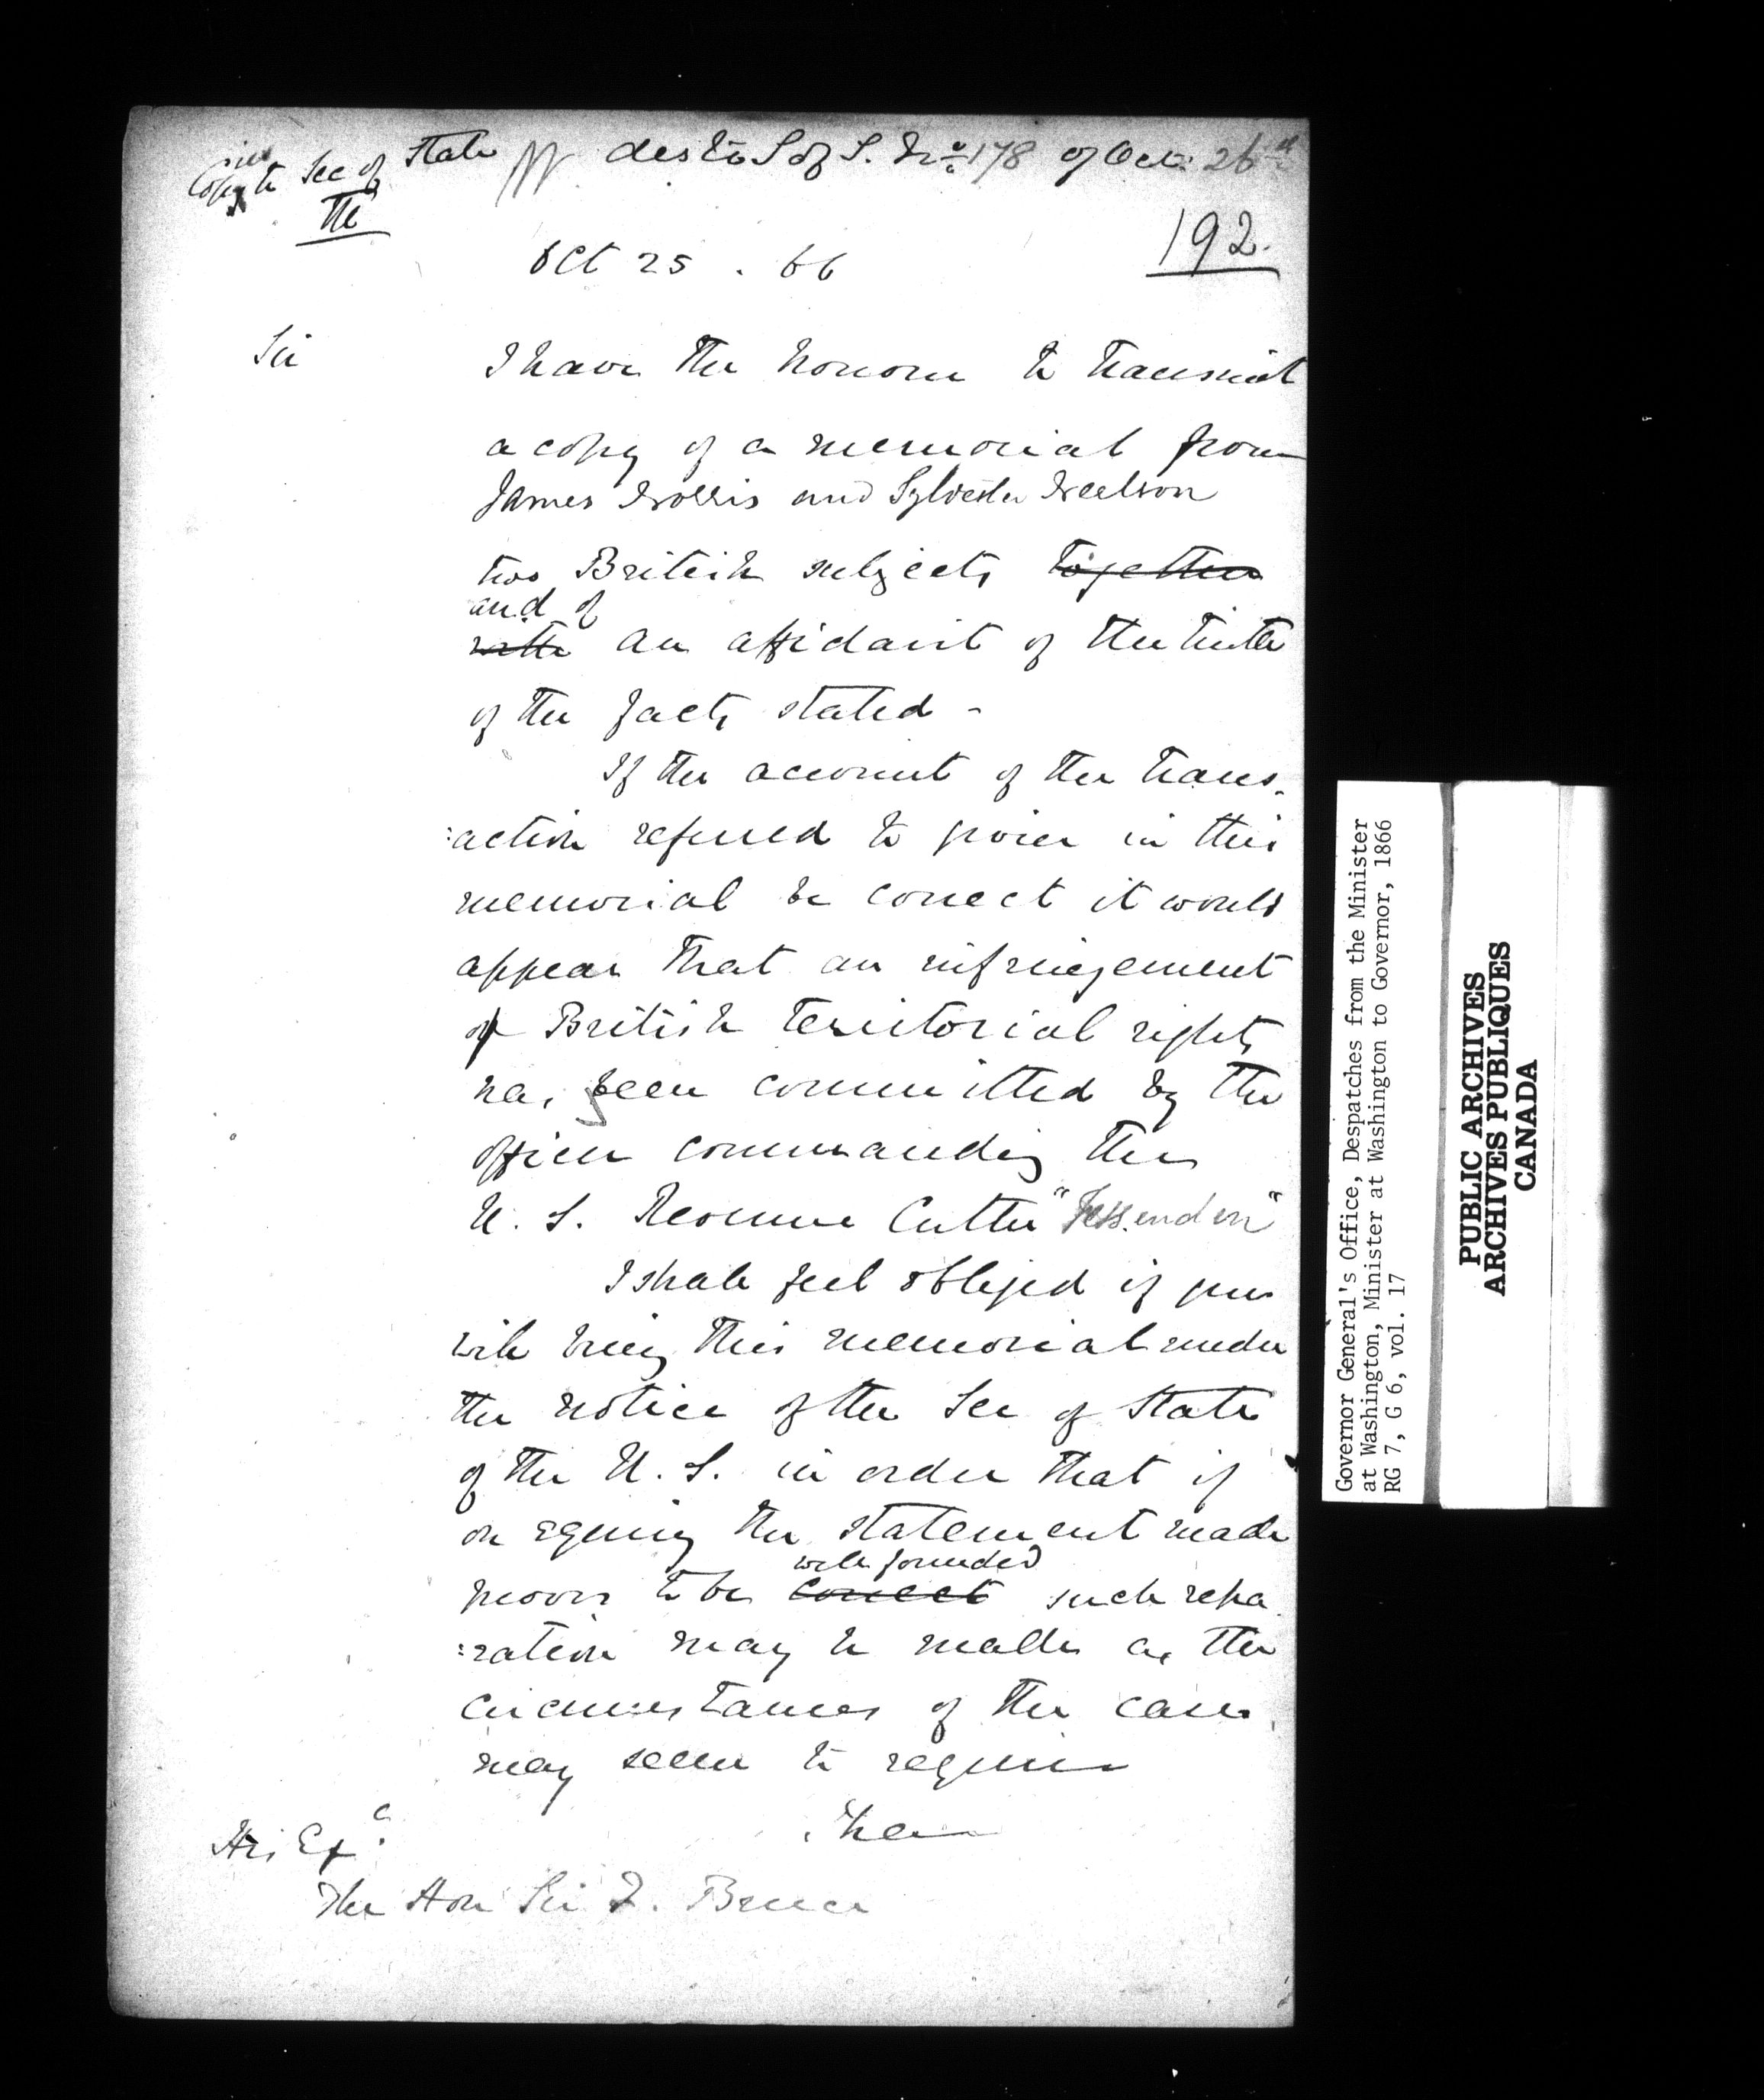 Copy to Sec of State des to S of S. No 178 of Oct: 26th
192.
Oct 25 . 66
Sir
I have the honour to transmit
a copy of a memorial from
James Norris and Sylvester Neelson
two British subjects together
and of
with an affidavit of the truth
of the facts stated -
If the account of the trans-
:action referred to given in this
memorial be correct it would
appear that an infringement
of British territorial rights
has been committed by the
officer commanding the
U. S. Revenue Cutter "Fessenden"
I shall feel obliged if you
will bring this memorial under
the notice of the Sec of State
of the U. S. in order that if
on enquiry the statement made
well founded
proves to be correct such repa
:ration may be made as the
circumstances of the case
may seem to require
I have
His Exc:
The Hon Sir F. Bruce
Governor General's Office, Despatches from the Minister
at Washington, Minister at Washington to Governor, 1866
RG 7, G 6, vol. 17
PUBLIC ARCHIVES
ARCHIVES PUBLIQUES
CANADA